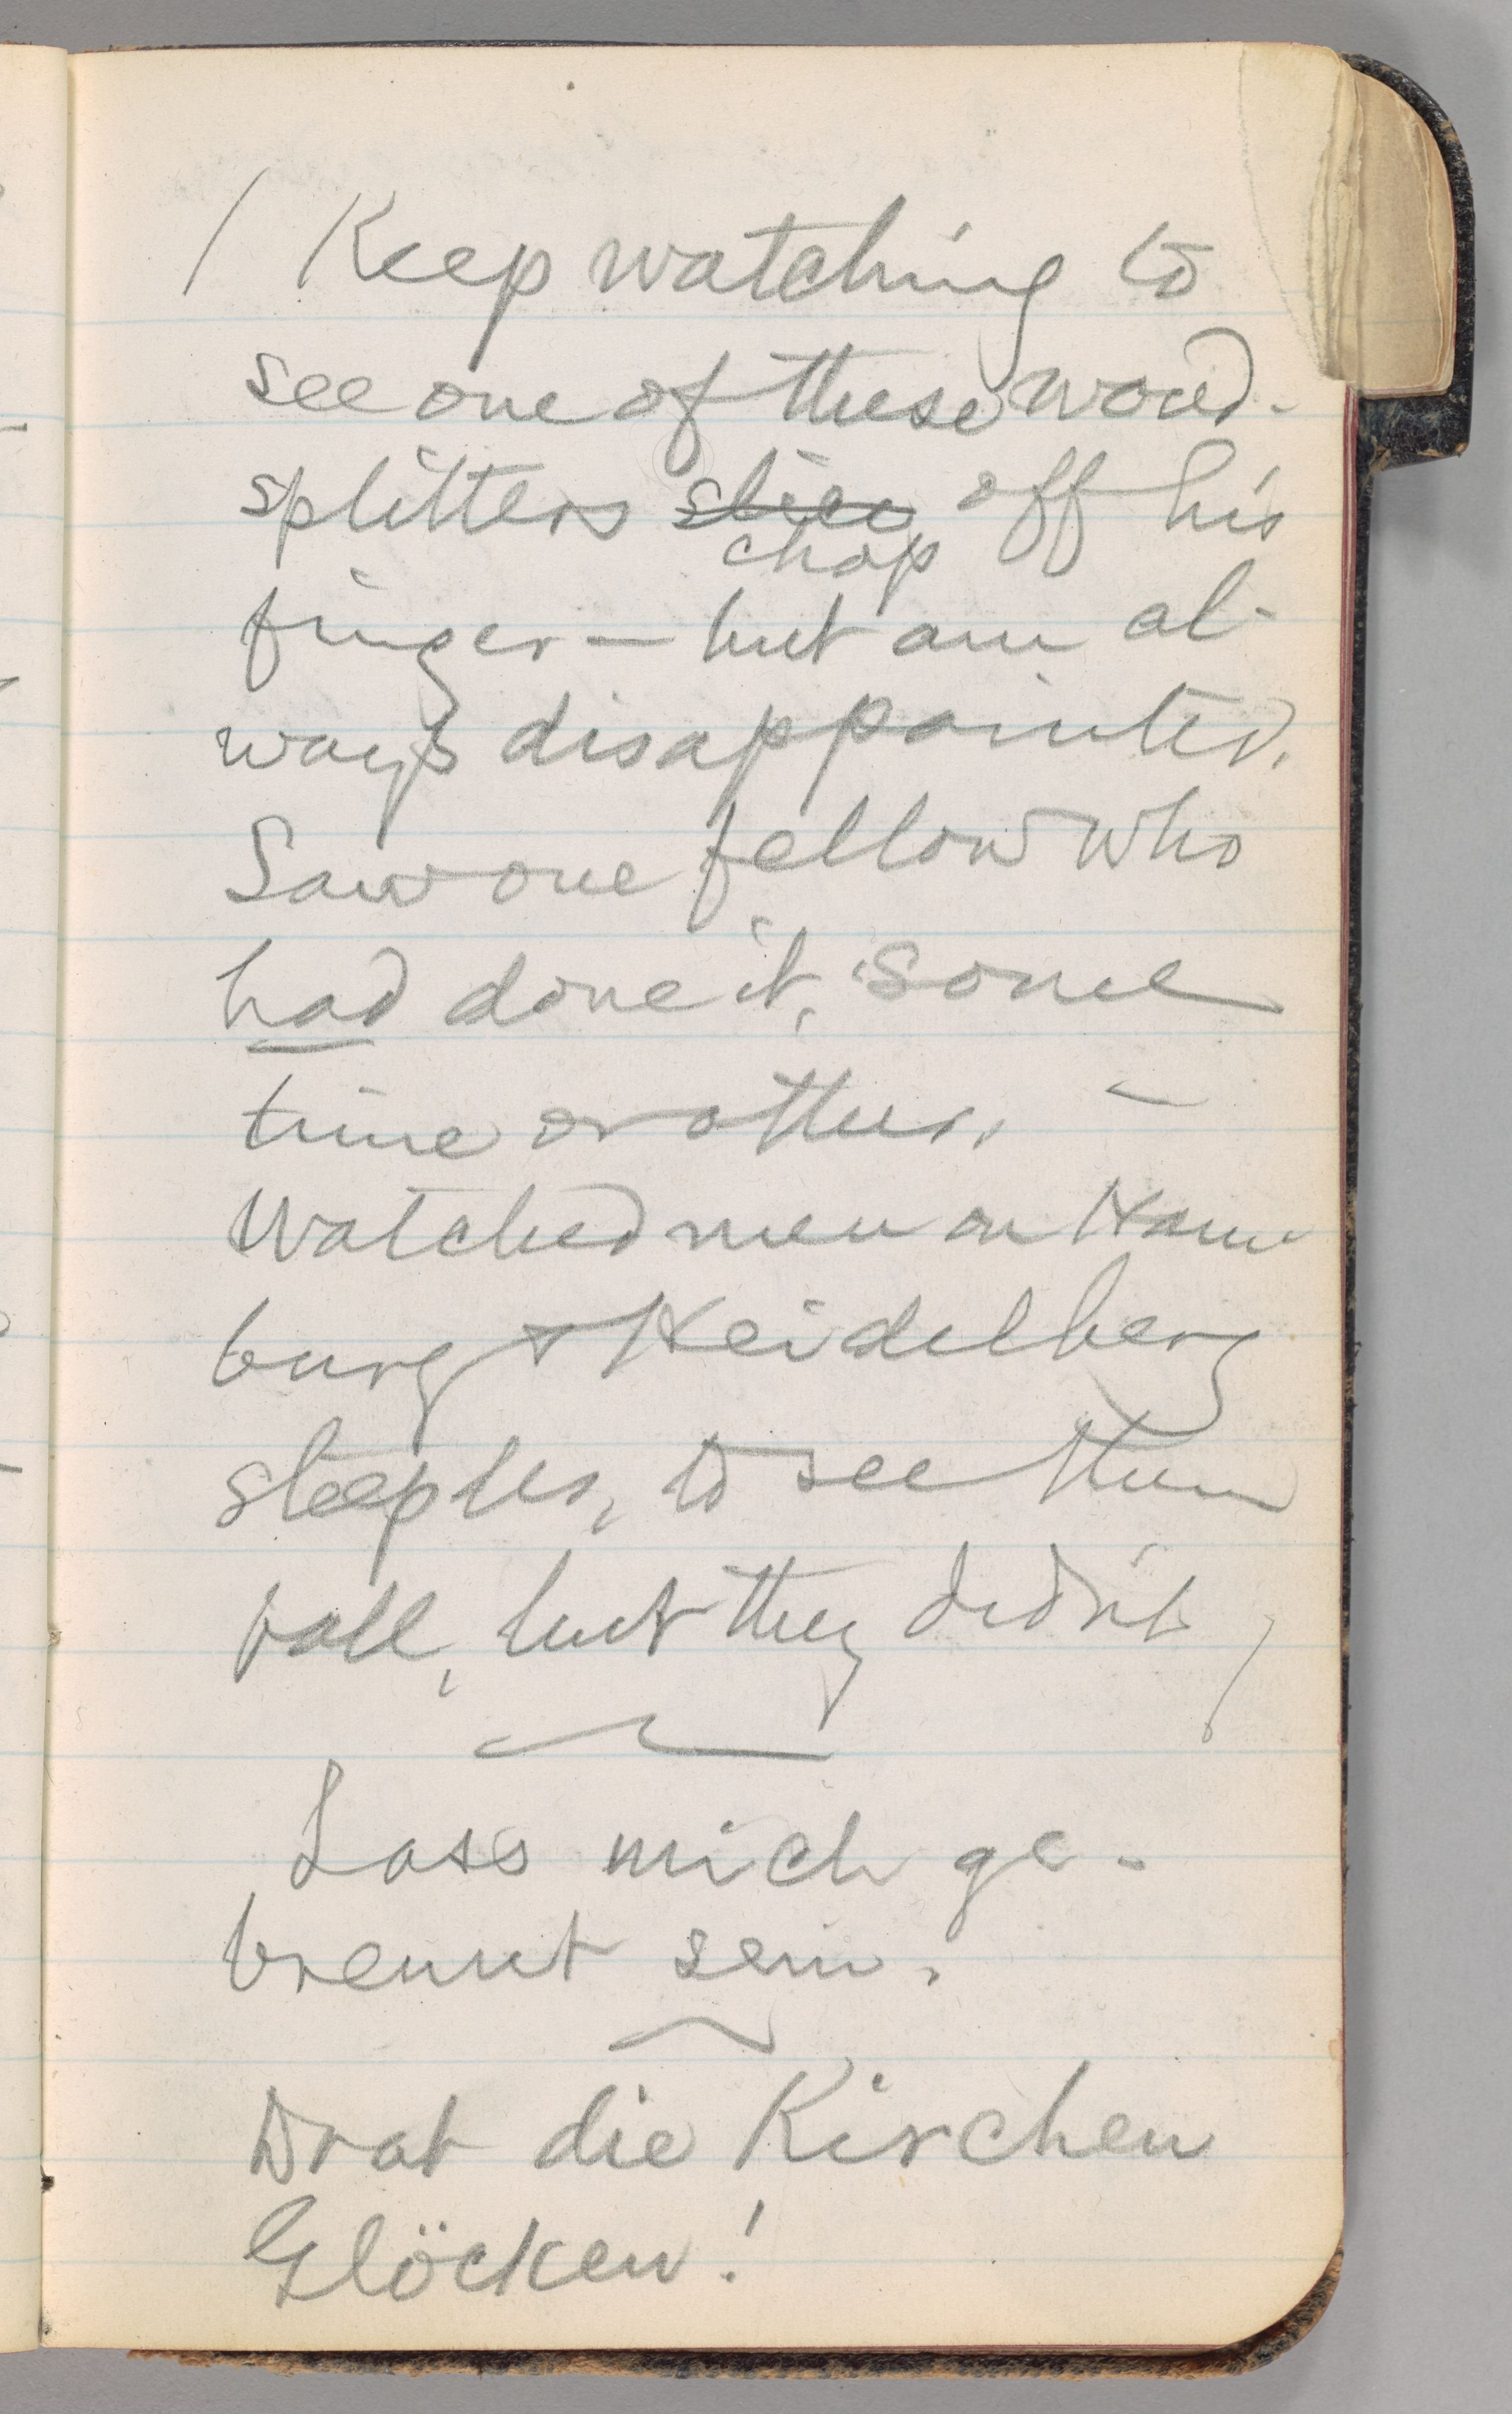 / Keep watching to
see one of these wood-
splitters slice off his
chop
finger — but am al-
ways disappointed.
Saw one fellow who
had done it, some
time or other. —
Watched men on Ham-
burg & Heidelberg
steeples, to see them
fall, but they didn't /
Lass mich ge-
brennt sein.
Drat die Kirchen
Glöcken!